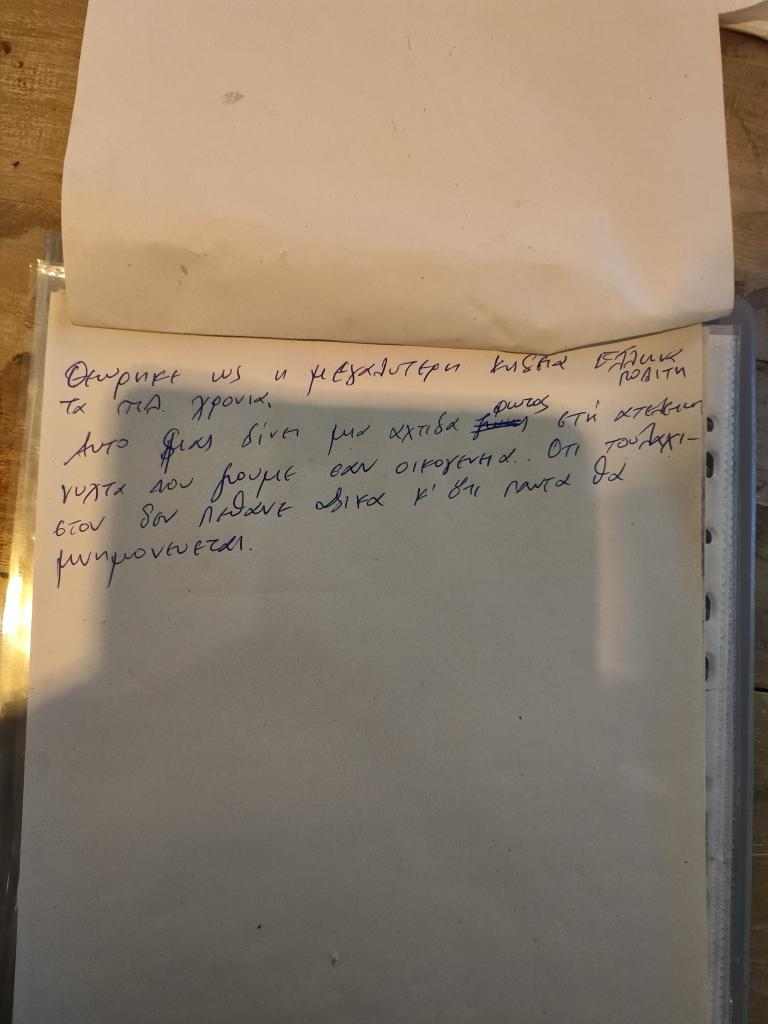 Θεωρηκε ως η μεγαλυτερη κηδεια Ελληνα πολιτη
τα τελ. χρονια.
Αυτο μας δίνει μια αχτιδα φωτος στη ατελειωτη
νυχτα που ζουμε σαν οικογενεια. Οτι τουλαχι-
στον δεν πεθανε αδικα κ' ότι παντα θα
μνημονευεται.